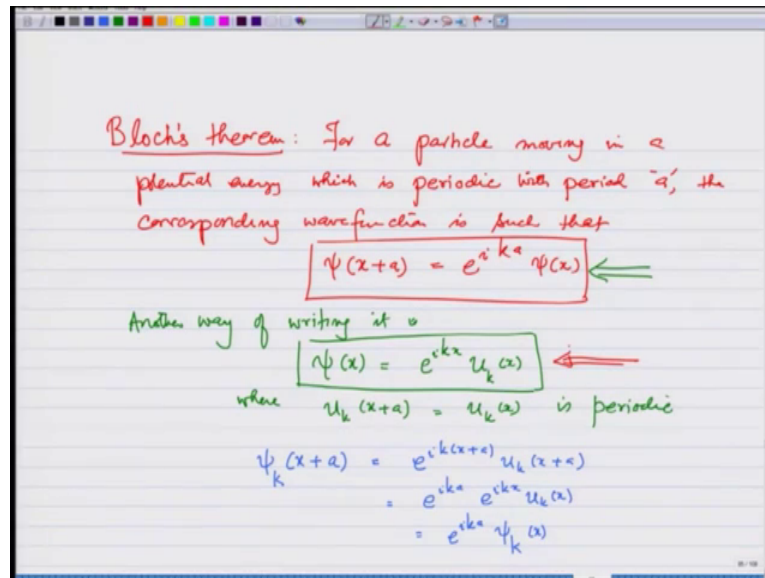 Bloch's theorem: For a particle moving in a
potential energy which is periodic with period 'a', the
corresponding wavefunction is such that
ψ(x+a) = e^{ika} ψ(x)
Another way of writing it is
ψ(x) = e^{ikx} u_k(x)
where u_k(x+a) = u_k(x) is periodic
ψ_k(x+a) = e^{ik(x+a)} u_k(x+a)
= e^{ika} e^{ikx} u_k(x)
= e^{ika} ψ_k(x)